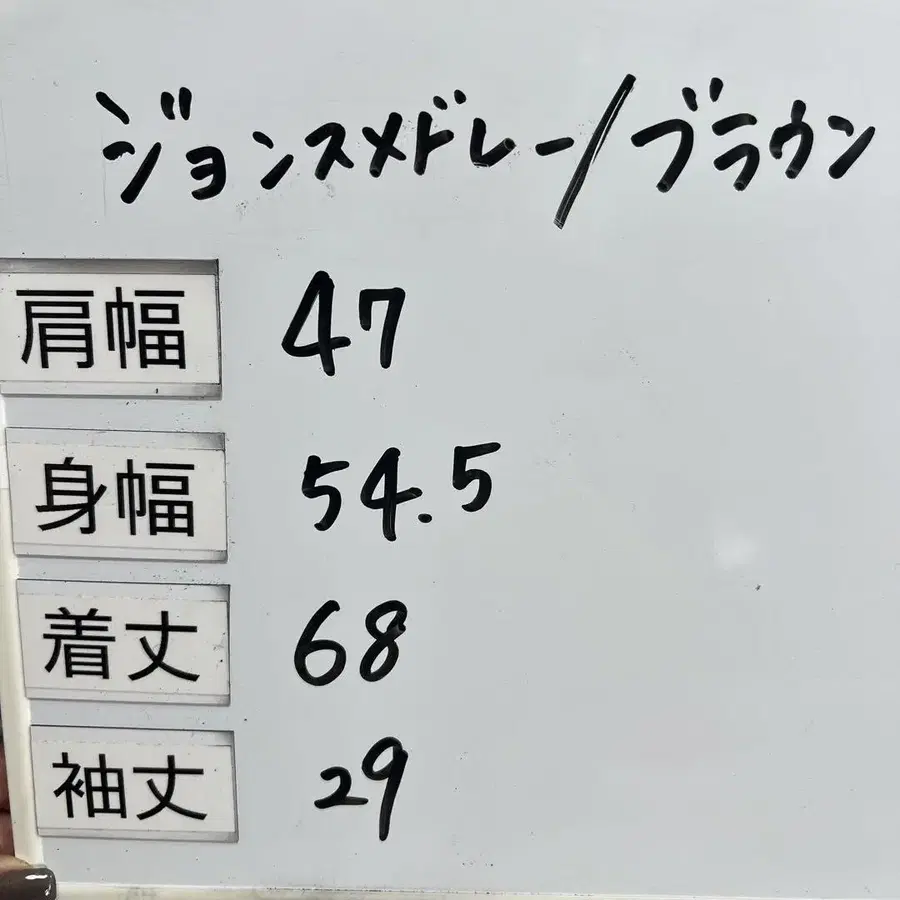 ジョンスメドレー/ブラウン
肩幅 47
身幅 54.5
着丈 68
袖丈 29